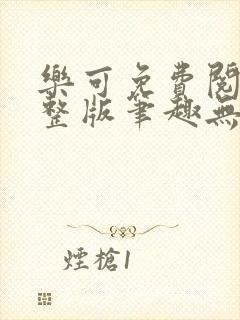 樂可免費閱
整版筆趣無
煙槍1